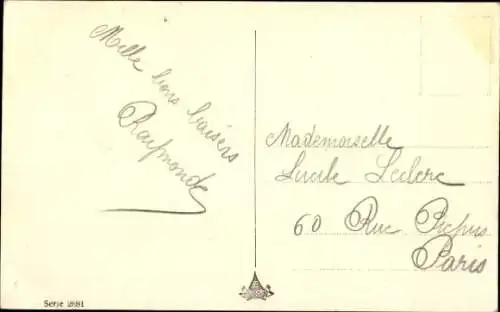 Mille bons baisers
Raymonde
Mademoiselle
Lucile Leclerc
60 Rue Picpus
Paris
Serie 2881